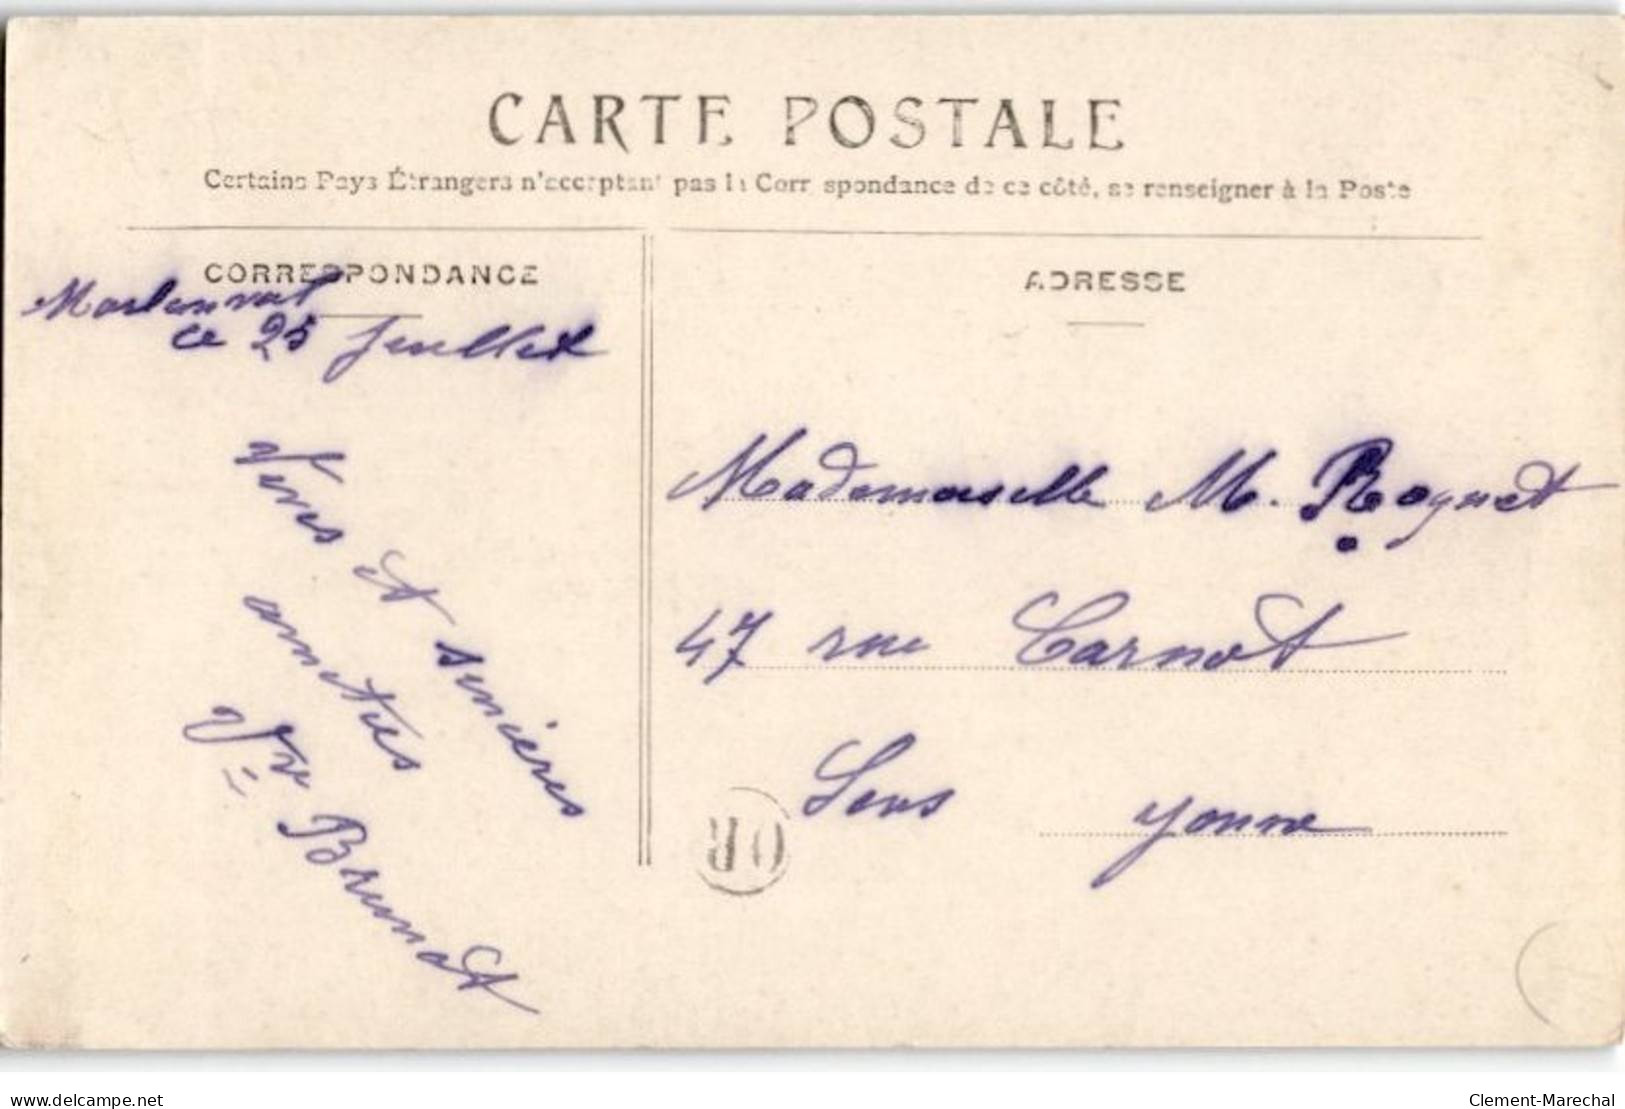 CARTE POSTALE
Certains Pays Étrangers n'acceptent pas la Correspondance de ce côté, se renseigner à la Poste
CORRESPONDANCE
ce 25 Juillet
Vives et sincères
amitiés
Vve Brunot
ADRESSE
Mademoiselle M. Roguet
47 rue Carnot
Sens Yonne
delcampe.net
Clement-Marechal